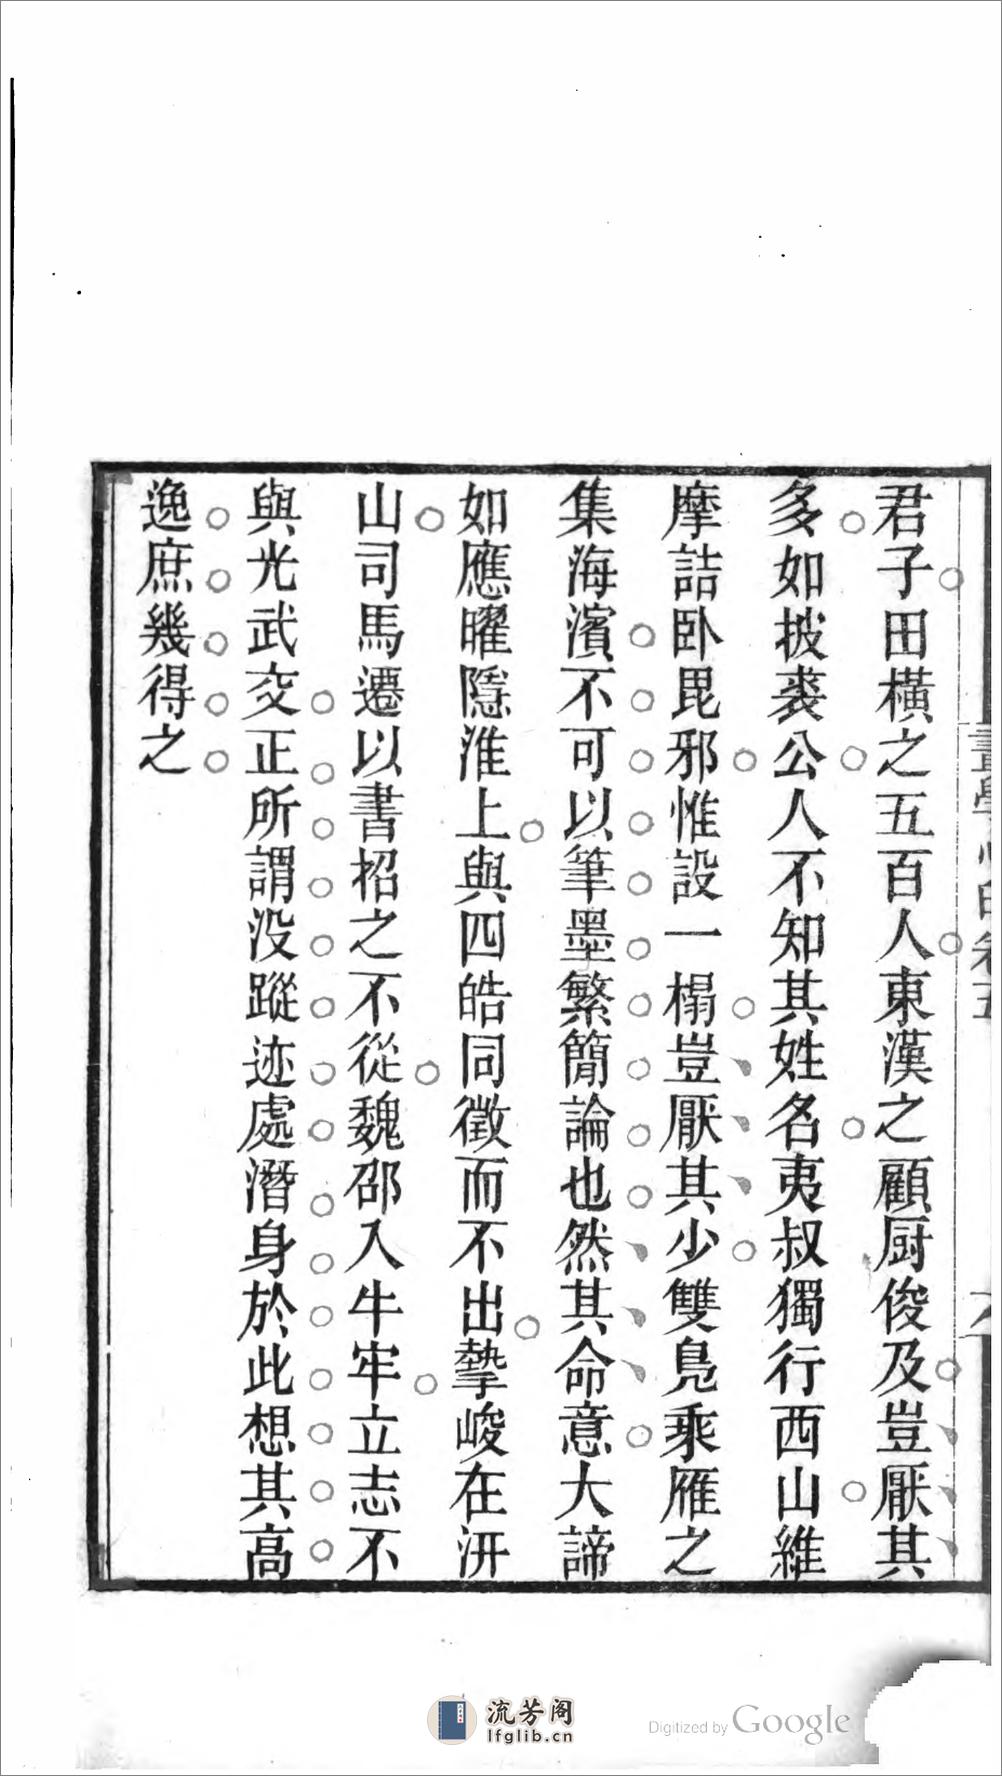 君子田橫之五百人東漢之顧厨俊及豈厭其
多如披裘公人不知其姓名夷叔獨行西山維
摩詰卧毘邪惟設一榻豈厭其少雙鳧乘雁之
集海濱不可以筆墨繁簡論也然其命意大諦
如應曜隱淮上與四皓同徵而不出摯峻在汧
山司馬遷以書招之不從魏邵入牛牢立志不
與光武交正所謂没蹤迹處潛身於此想其高
逸庶幾得之
流芳阁
lfglib.cn
Digitized by Google